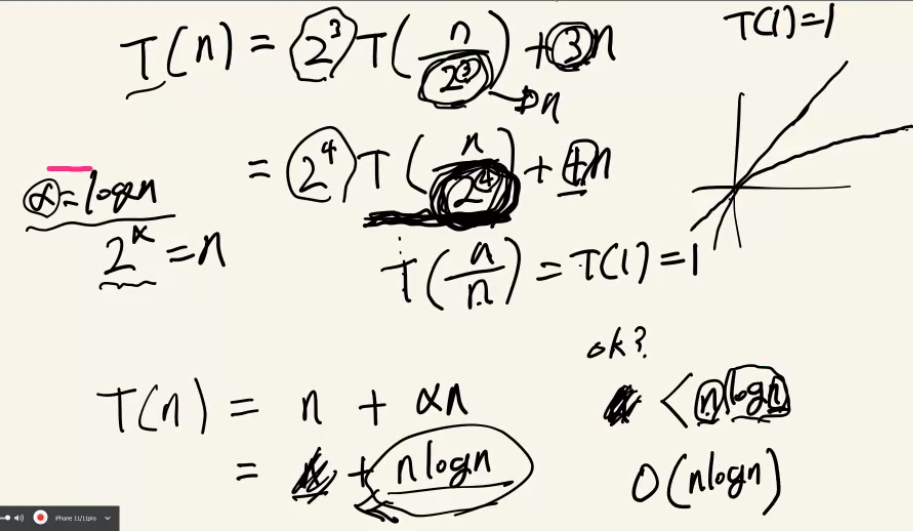 T(n) = 2³T(n/2³) + 3n
T(1)=1
→ n
= 2⁴T(n/2⁴) + 4n
α = logn
2^α = n
T(n/n) = T(1) = 1
ok?
T(n) = n + αn
< n logn
= + nlogn
O(nlogn)
iPhone 11/11pro